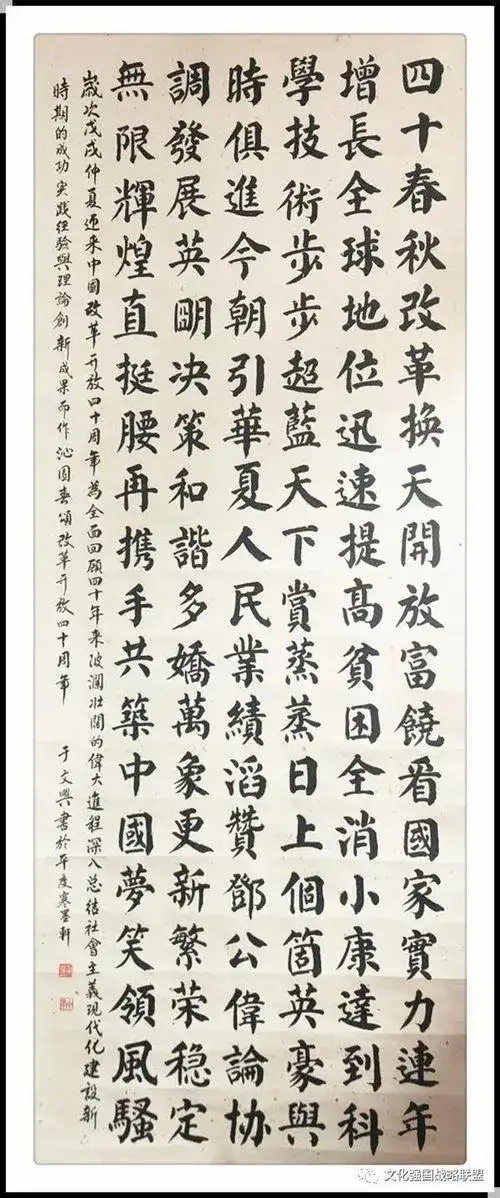 四十春秋改革換天開放富饒看國家實力連年
增長全球地位迅速提高貧困全消小康達到科
學技術步步超藍天下賞蒸蒸日上個箇英豪與
時俱進今朝引華夏人民業績滔贊鄧公偉論协
調發展英明决策和諧多嬌萬象更新繁荣稳定
無限輝煌直挺腰再携手共築中國夢笑領風騷
歲次戊戌仲夏迎来中國改革开放四十周年為全面回顾四十年来波瀾壮闊的偉大進程深入总结社會主義現代化建設新
時期的成功实践经验與理論創新成果而作沁園春頌改革开放四十周年 于文興書於平度寒墨軒
文化强国战略联盟